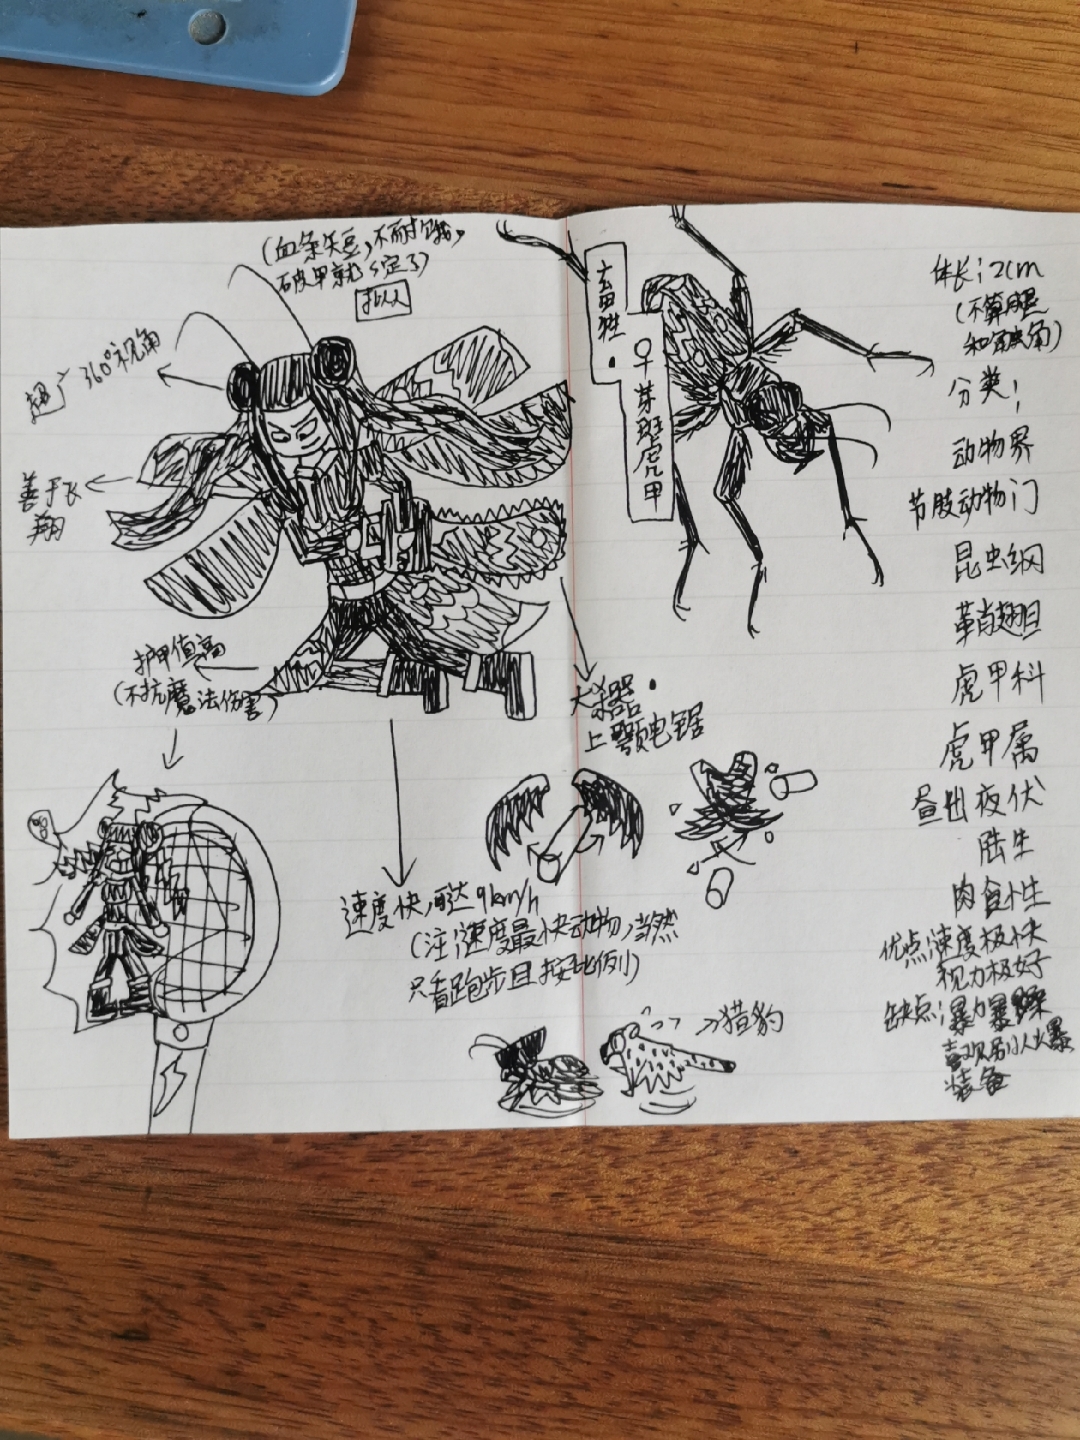 (血条矢豆,不耐饿,
破甲就定了)
拟人
超广360°视角
善于飞
翔
护甲值高
(不抗魔法伤害)
大杀器:
上颚电锯
速度快,可达9km/h
(注:速度最快动物,当然
只看跑步且按比例)
→猎豹
♀芽斑虎甲
体长:2cm
(不算腿
和触角)
分类:
动物界
节肢动物门
昆虫纲
革肖翅目
虎甲科
虎甲属
昼出夜伏
陆生
肉食性
优点:速度极快
视力极好
缺点:暴力暴躁
喜欢别人爆
装备